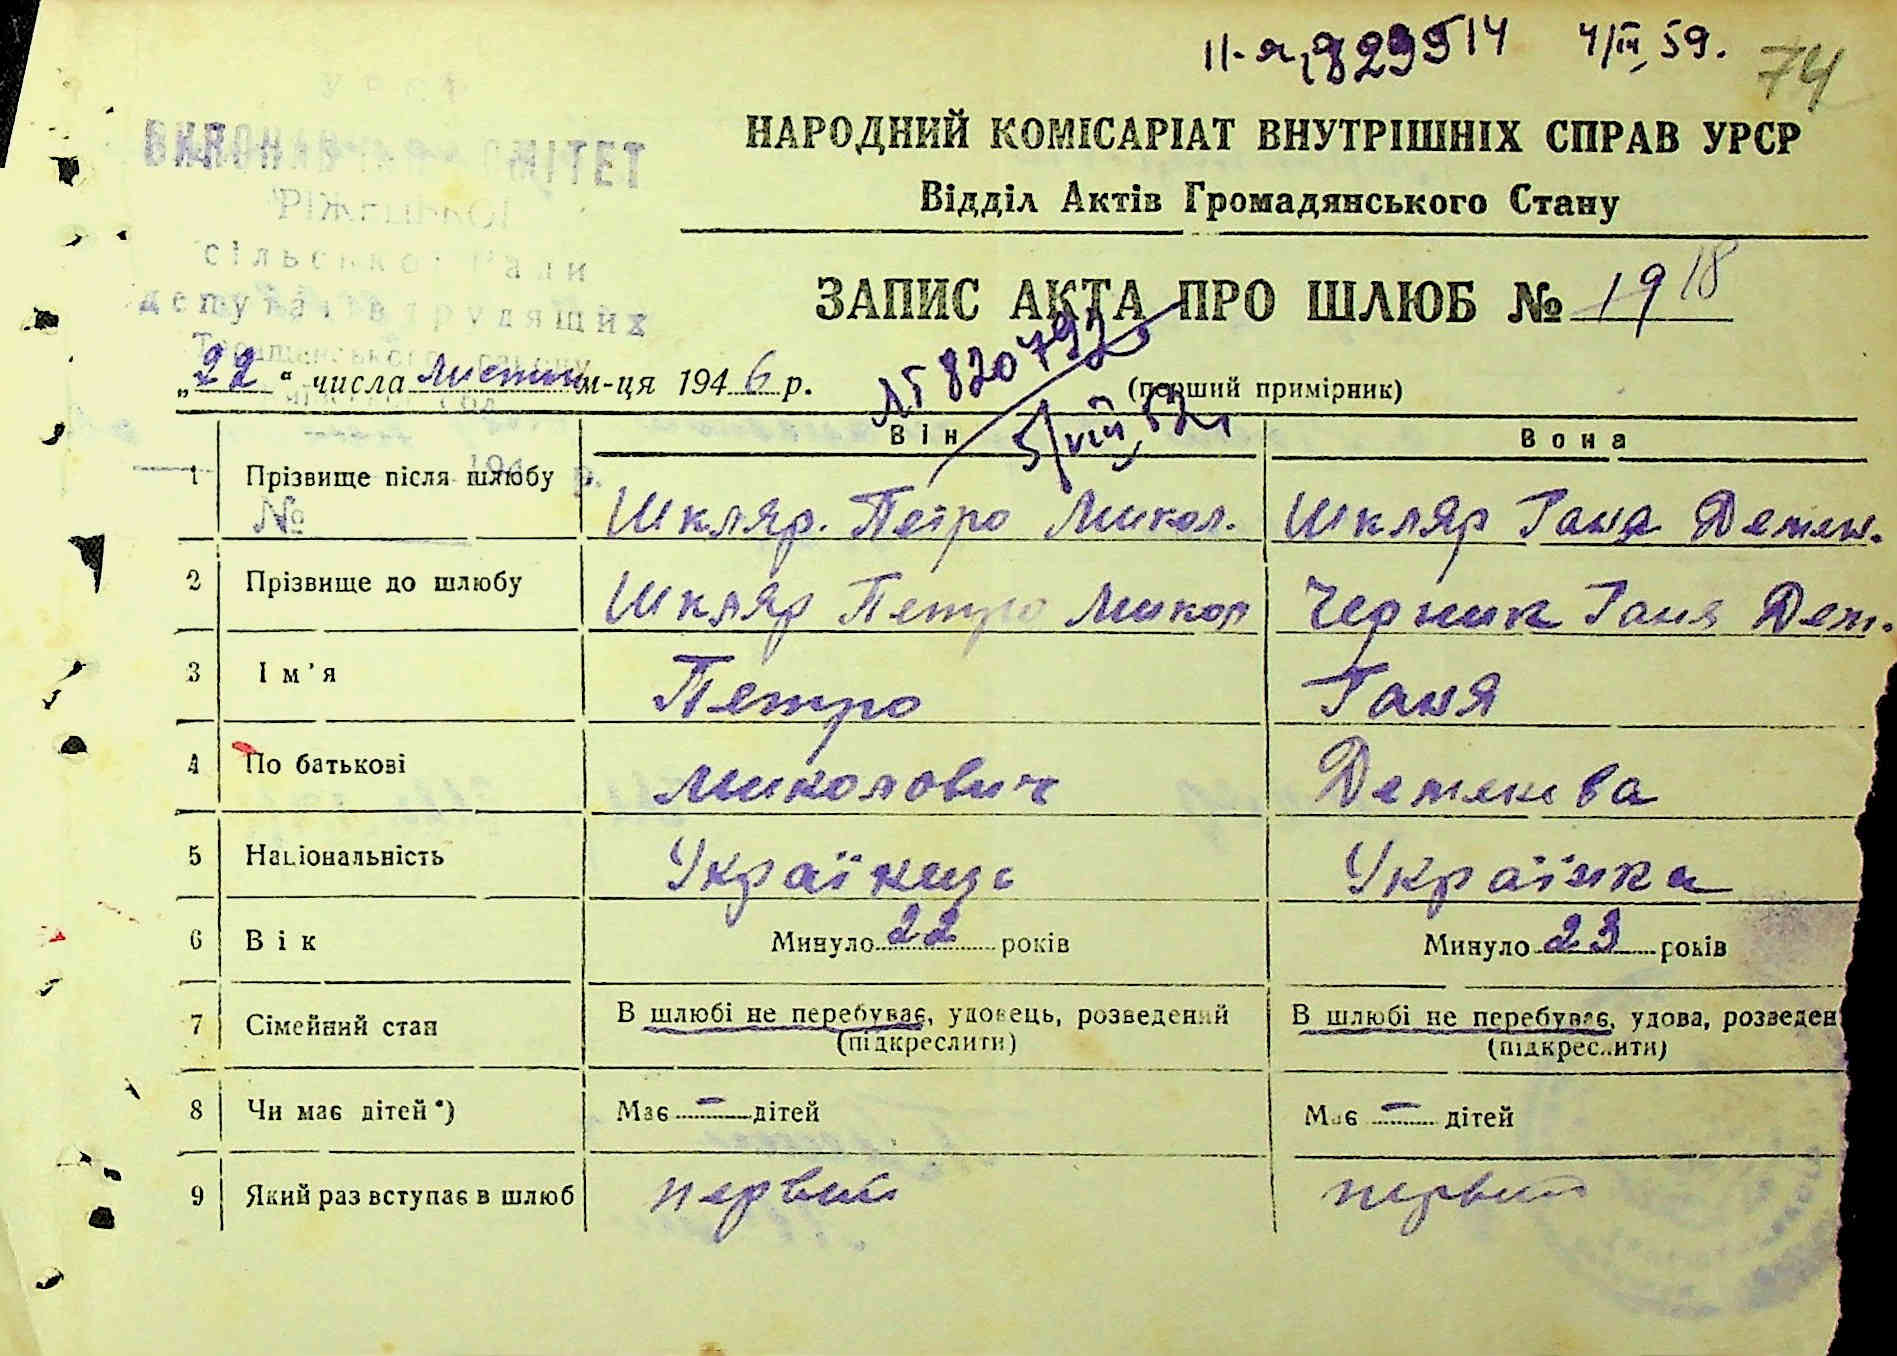 II-я 829514 4/III, 59. 74
УРСР
ВИКОНАВЧИЙ КОМІТЕТ
сільської Ради
депутатів трудящих
Таращанського району
НАРОДНИЙ КОМІСАРІАТ ВНУТРІШНІХ СПРАВ УРСР
Відділ Актів Громадянського Стану
ЗАПИС АКТА ПРО ШЛЮБ № 19 18
„22“ числа листоп м-ця 1946 р.
(перший примірник)
№ 820792
5/VIII, 52
Він Вона
1 Прізвище після шлюбу Шкляр. Петро Микол. Шкляр Ганя Демен.
194 р.
№
2 Прізвище до шлюбу Шкляр Петро Микол Черник Ганя Дем.
3 Ім'я Петро Ганя
4 По батькові Миколович
5 Національність Українець Українка
6 Вік Минуло 22 років Минуло 23 років
7 Сімейний стан В шлюбі не перебуває, удовець, розведений В шлюбі не перебуває, удова, розведен
(підкреслити) (підкреслити)
8 Чи має дітей*) Має – дітей Має – дітей
9 Який раз вступає в шлюб первий первий